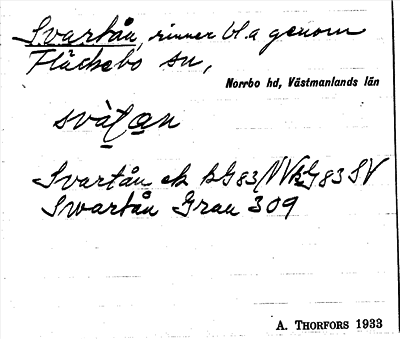 Svartån, rinner bl.a genom
Fläckebo sn,
Norrbo hd, Västmanlands län
Svartån ek
Swartån Grau 309
A. THORFORS 1933